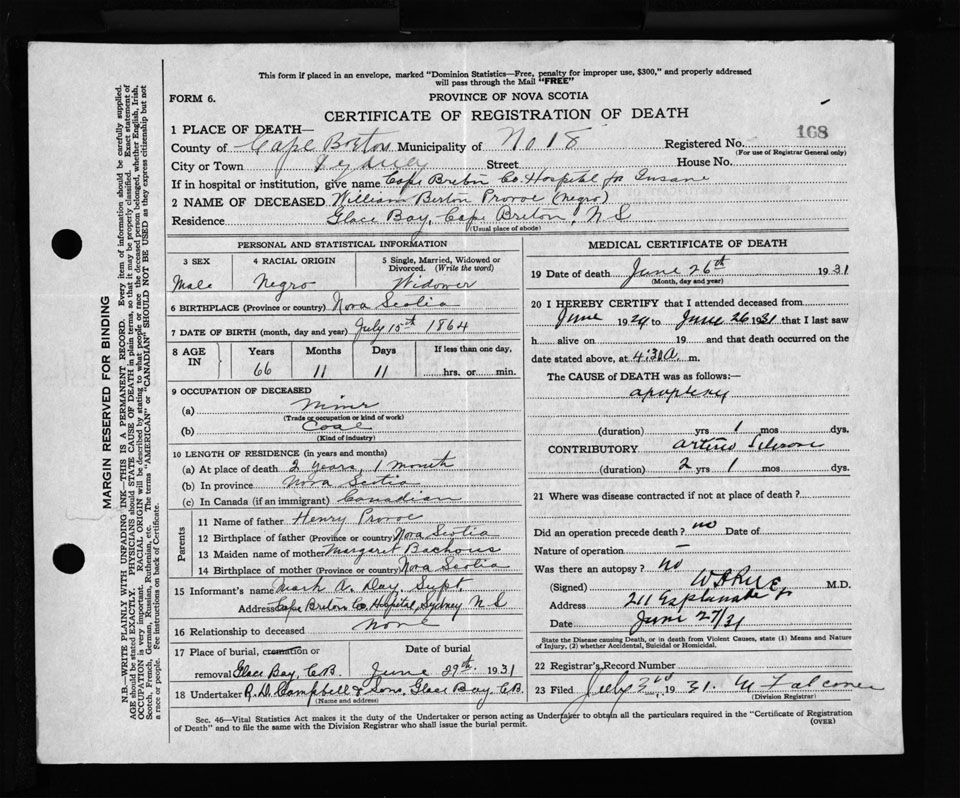 This form if placed in an envelope, marked "Dominion Statistics—Free, penalty for improper use, $300," and properly addressed
will pass through the Mail "FREE"
FORM 6.
PROVINCE OF NOVA SCOTIA
CERTIFICATE OF REGISTRATION OF DEATH
168
1 PLACE OF DEATH—
County of Cape Breton Municipality of No 18 Registered No.
(For use of Registrar General only)
City or Town Sydney Street House No.
If in hospital or institution, give name Cape Breton Co. Hospital for Insane
2 NAME OF DECEASED William Berton Provoe (Negro)
Residence Glace Bay, Cape Breton, N S
(Usual place of abode)
PERSONAL AND STATISTICAL INFORMATION
3 SEX
Male
4 RACIAL ORIGIN
Negro
5 Single, Married, Widowed or
Divorced. (Write the word)
Widower
6 BIRTHPLACE (Province or country) Nova Scotia
7 DATE OF BIRTH (month, day and year) July 15th 1864
8 AGE
IN
Years Months Days If less than one day,
66 11 11 hrs. or min.
9 OCCUPATION OF DECEASED
(a) Miner
(Trade or occupation or kind of work)
(b) Coal
(Kind of industry)
10 LENGTH OF RESIDENCE (in years and months)
(a) At place of death 2 years, 1 month
(b) In province Nova Scotia
(c) In Canada (if an immigrant) Canadian
Parents
11 Name of father Henry Provoe
12 Birthplace of father (Province or country) Nova Scotia
13 Maiden name of mother Margaret
14 Birthplace of mother (Province or country) Nova Scotia
15 Informant's name Mark A. Day, Supt.
Address Cape Breton Co. Hospital, Sydney N S
16 Relationship to deceased None
17 Place of burial, cremation or Date of burial
removal Glace Bay, C.B. June 29th. 1931
18 Undertaker R. D. Campbell & Sons, Glace Bay, C.B.
(Name and address)
MEDICAL CERTIFICATE OF DEATH
19 Date of death June 26th 1931
(Month, day and year)
20 I HEREBY CERTIFY that I attended deceased from
June 1929 to June 26 1931 that I last saw
h alive on 19 and that death occurred on the
date stated above, at 4:30 a m.
The CAUSE of DEATH was as follows:—
apoplexy
(duration) yrs 1 mos dys.
CONTRIBUTORY
(duration) 2 yrs 1 mos dys.
21 Where was disease contracted if not at place of death?
Did an operation precede death? no Date of
Nature of operation —
Was there an autopsy? no
(Signed) M.D.
Address 211 Esplanade
Date June 27/31
State the Disease causing Death, or in death from Violent Causes, state (1) Means and Nature
of Injury, (2) whether Accidental, Suicidal or Homicidal.
22 Registrar's Record Number
23 Filed July 3rd 1931. Falconer
(Division Registrar)
Sec. 46—Vital Statistics Act makes it the duty of the Undertaker or person acting as Undertaker to obtain all the particulars required in the "Certificate of Registration
of Death" and to file the same with the Division Registrar who shall issue the burial permit.
(OVER)
MARGIN RESERVED FOR BINDING
N.B.—WRITE PLAINLY WITH UNFADING INK—THIS IS A PERMANENT RECORD. Every item of information should be carefully supplied.
AGE should be stated EXACTLY. PHYSICIANS should STATE CAUSE OF DEATH in plain terms, so that it may be properly classified. Exact statement of
OCCUPATION is very important. RACIAL ORIGIN will be described by stating to what people or race the deceased person belonged, whether English, Irish,
Scotch, French, German, Russian, Ruthenian, etc. The terms "AMERICAN" or "CANADIAN" SHOULD NOT BE USED as they express citizenship but not
a race or people. See instructions on back of Certificate.